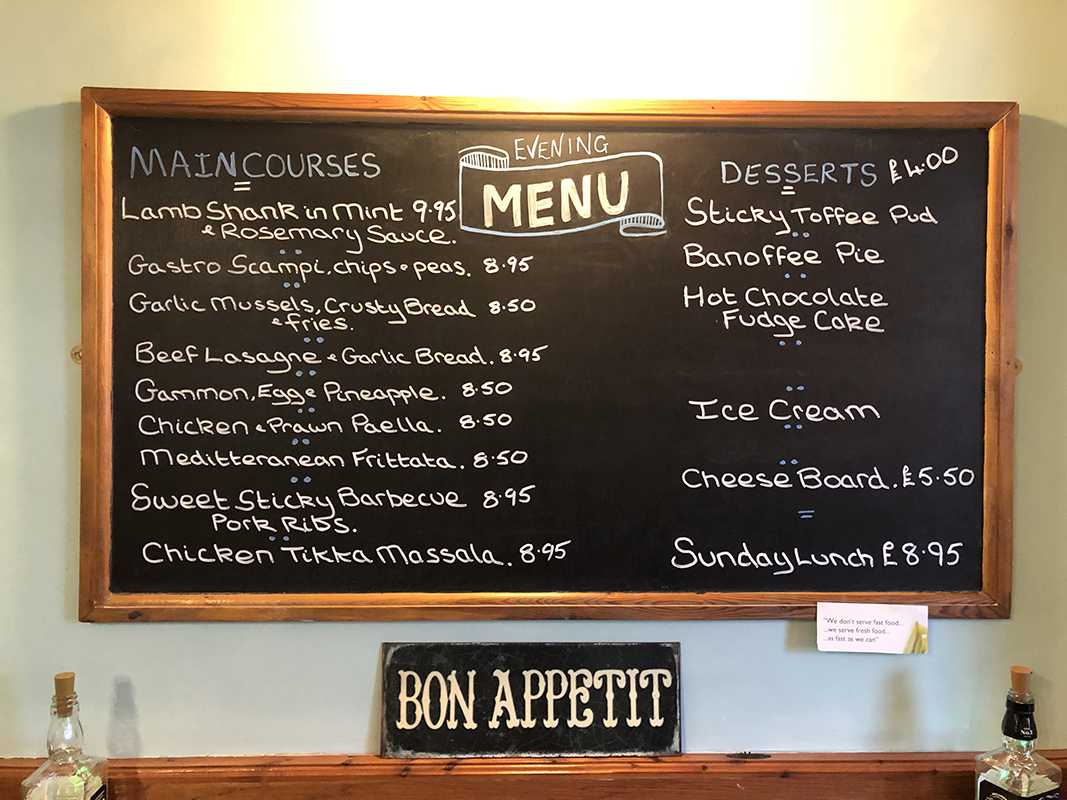 EVENING
MENU
MAIN COURSES
Lamb Shank in Mint 9.95
& Rosemary Sauce.
Gastro Scampi, chips & peas. 8.95
Garlic Mussels, Crusty Bread 8.50
& fries.
Beef Lasagne & Garlic Bread. 8.95
Gammon, Egg & Pineapple. 8.50
Chicken & Prawn Paella. 8.50
Meditteranean Frittata. 8.50
Sweet Sticky Barbecue 8.95
Pork Ribs.
Chicken Tikka Massala. 8.95
DESSERTS £4.00
Sticky Toffee Pud
Banoffee Pie
Hot Chocolate
Fudge Cake
Ice Cream
Cheese Board. £5.50
Sunday Lunch £8.95
"We don't serve fast food...
...we serve fresh food...
...as fast as we can"
BON APPETIT
No.7